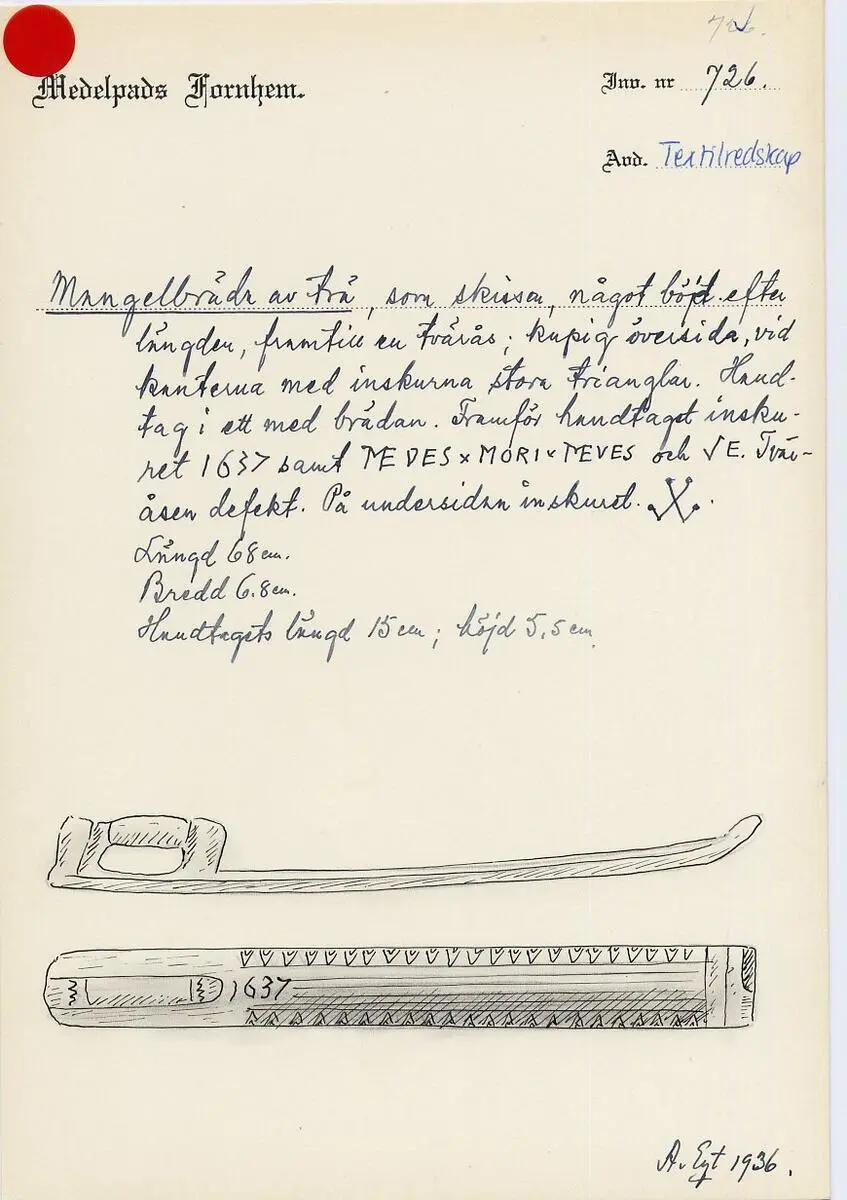 726.
Medelpads Fornhem.
Inv. nr 726.
Avd. Textilredskap
Mangelbräda av trä, som skissen, något böjd efter
längden, framtill en tvärås; kupig översida, vid
kanterna med inskurna stora trianglar. Hand-
tag i ett med brädan. Framför handtaget insku-
ret 1637 samt MEDES x MORI x MEVES och √E. Tvär-
åsen defekt. På undersidan inskuret.
Längd 68 cm.
Bredd 6.8 cm.
Handtagets längd 15 cm; höjd 5,5 cm.
1637
A. Eyt 1936.